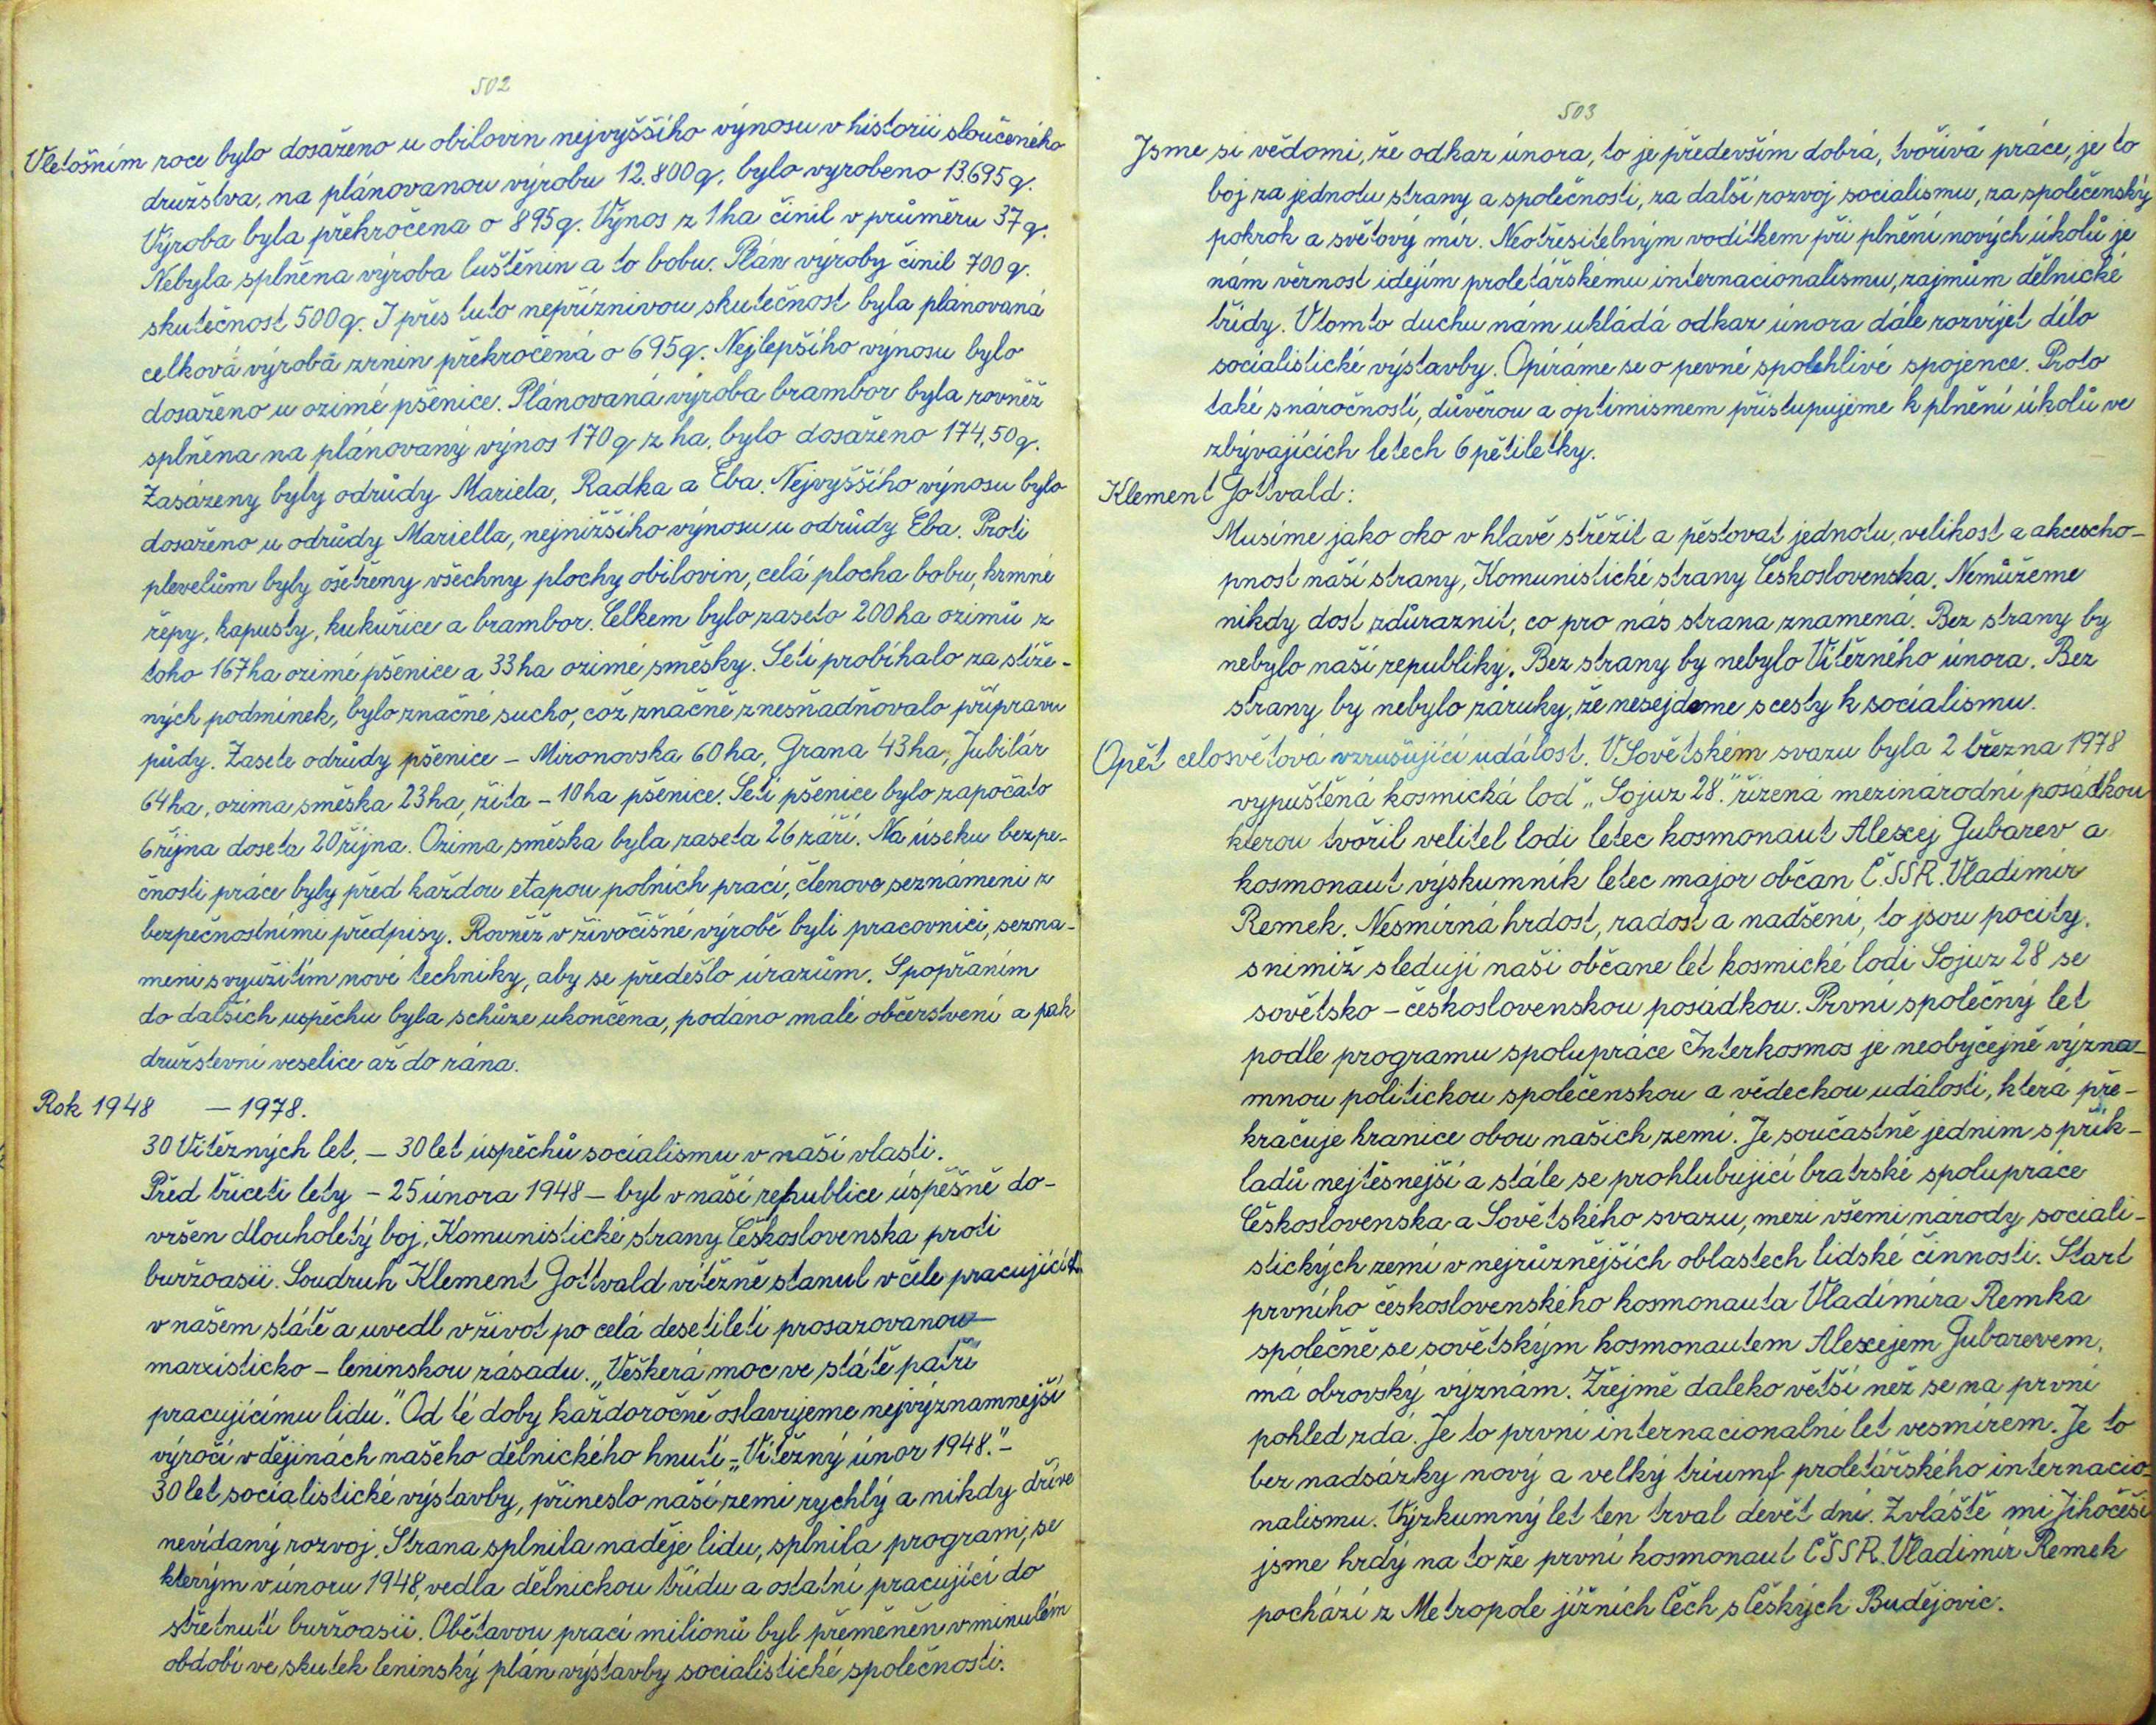 502
Vletošním roce bylo dosaženo u obilovin nejvyššího výnosu v historii sloučeného
družstva, na plánovanou výrobu 12.800 q. bylo vyrobeno 13.695 q.
Výroba byla překročena o 895 q. Výnos z 1 ha činil v průměru 37 q.
Nebyla splněna výroba luštěnin a to bobu. Plán výroby činil 700 q.
skutečnost 500 q. I přes tuto nepříznivou skutečnost byla plánovaná
celková výroba zrnin překročená o 695 q. Nejlepšího výnosu bylo
dosaženo u ozimé pšenice. Plánovaná výroba brambor byla rovněž
splněna na plánovaný výnos 170 q z ha, bylo dosaženo 174,50 q.
Zasázeny byly odrůdy Mariela, Radka a Eba. Nejvyššího výnosu bylo
dosaženo u odrůdy Mariella, nejnižšího výnosu u odrůdy Eba. Proti
plevelům byly ošetřeny všechny plochy obilovin, celá plocha bobu, krmné
řepy, kapusty, kukuřice a brambor. Celkem bylo zaseto 200 ha ozimů z
toho 167 ha ozimé pšenice a 33 ha ozimé směsky. Setí probíhalo za stíže-
ných podmínek, bylo značné sucho, což značně znesnadňovalo přípravu
půdy. Zaseté odrůdy pšenice - Mironovska 60 ha, Grana 43 ha, Jubilár
64 ha, ozima směska 23 ha, žita - 10 ha pšenice. Setí pšenice bylo započato
6 října doseta 20 října. Ozima směska byla zaseta 26 září. Na úseku bezpe-
čnosti práce byly před každou etapou polních prací, členove seznámeni z
bezpečnostními předpisy. Rovněž v živočišné výrobě byli pracovníci, sezna-
meni s využitím nové techniky, aby se předešlo úrazům. Spopřaním
do dalších uspěchu byla schůze ukončena, podáno malé občerstvení a pak
družstevní veselice až do rána.
Rok 1948 - 1978.
30 Vítězných let, - 30 let úspěchů socialismu v naší vlasti.
Před třiceti lety - 25 února 1948 - byl v naší republice úspěšně do-
vršen dlouholetý boj, Komunistické strany Československa proti
buržoasii. Soudruh Klement Gottwald vítězně stanul v čele pracujících
v našem státě a uvedl v život po celá desetiletí prosazovanou
marxisticko - leninskou zásadu. „Veškerá moc ve státě patří
pracujícímu lidu." Od té doby každoročně oslavujeme nejvýznamnejší
výročí v dějinách našeho dělnického hnutí - „Vítězný únor 1948." -
30 let socialistické výstavby, přineslo naší zemi rychlý a nikdy dříve
nevídaný rozvoj. Strana splnila naděje lidu, splnila program, se
kterým v únoru 1948, vedla dělnickou třídu a ostatní pracující do
střetnutí buržoasii. Obětavou prací milionů byl přeměněn v minulém
období ve skutek leninský plán výstavby socialistické společnosti.
503
Jsme si vědomi, že odkaz února, to je především dobrá, tvořivá práce, je to
boj za jednotu strany a společnosti, za další rozvoj socialismu, za společenský
pokrok a světový mír. Neotřesitelným vodítkem při plnění nových úkolů je
nám věrnost idejím proletářskému internacionalismu, zajmům dělnické
třídy. Vtomto duchu nám ukládá odkaz února dále rozvíjet dílo
socialistické výstavby. Opíráme se o pevné spolehlivé spojence. Proto
také snáročností, důvěrou a optimismem přistupujeme k plnění úkolů ve
zbývajících letech 6 pětiletky.
Klement Gottvald:
Musíme jako oko v hlavě střežit a pěstovat jednotu, velikost a akcescho-
pnost naší strany, Komunistické strany Československa. Nemůžeme
nikdy dost zdůraznit, co pro nás strana znamená. Bez strany by
nebylo naší republiky. Bez strany by nebylo Vítězného února. Bez
strany by nebylo záruky, že nesejdeme s cesty k socialismu.
Opět celosvětová vzrušující událost. V Sovětském svazu byla 2 března 1978
vypuštěná kosmická loď „Sojuz 28." řízená mezinárodní posádkou
kterou tvořil velitel lodi letec kosmonaut Alexej Gubarev a
kosmonaut výskumník letec major občan Č.SSR. Vladimír
Remek. Nesmírná hrdost, radost a nadšení, to jsou pocity.
snimiž sledují naši občane let kosmické lodi Sojuz 28 se
sovětsko - československou posádkou. První společný let
podle programu spolupráce Interkosmos je neobyčejně význa-
mnou politickou společenskou a vědeckou událostí, která pře-
kračuje hranice obou našich zemí. Je součastně jedním s přík-
ladů nejtěsnější a stále se prohlubující bratrské spolupráce
Československa a Sovětského svazu, mezi všemi národy, sociali-
stických zemí v nejrůznějších oblastech lidské činnosti. Start
prvního československého kosmonauta Vladimíra Remka
společně se sovětským kosmonautem Alexejem Gubarevem,
má obrovský význám. Zřejmě daleko větší než se na první
pohled zdá. Je to první internacionalní let vesmírem. Je to
bez nadsázky nový a velký triumf proletářského internacio-
nalismu. Výzkumný let ten trval devět dní. Zvláště mi Jihočeši
jsme hrdý na to že první kosmonaut ČSSR. Vladimír Remek
pochází z Metropole jižních Čech s Českých Budějovic.